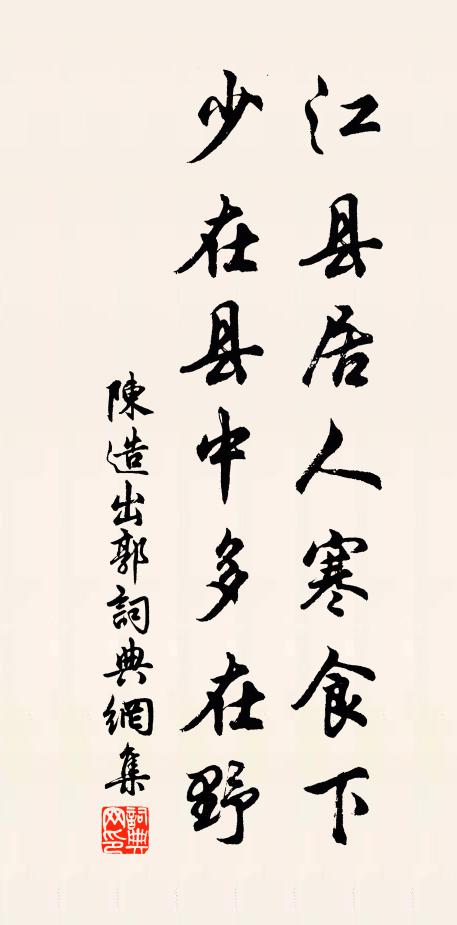 江县居人寒食下
少在县中多在野
陳造出郭詞典網集
詞典網印